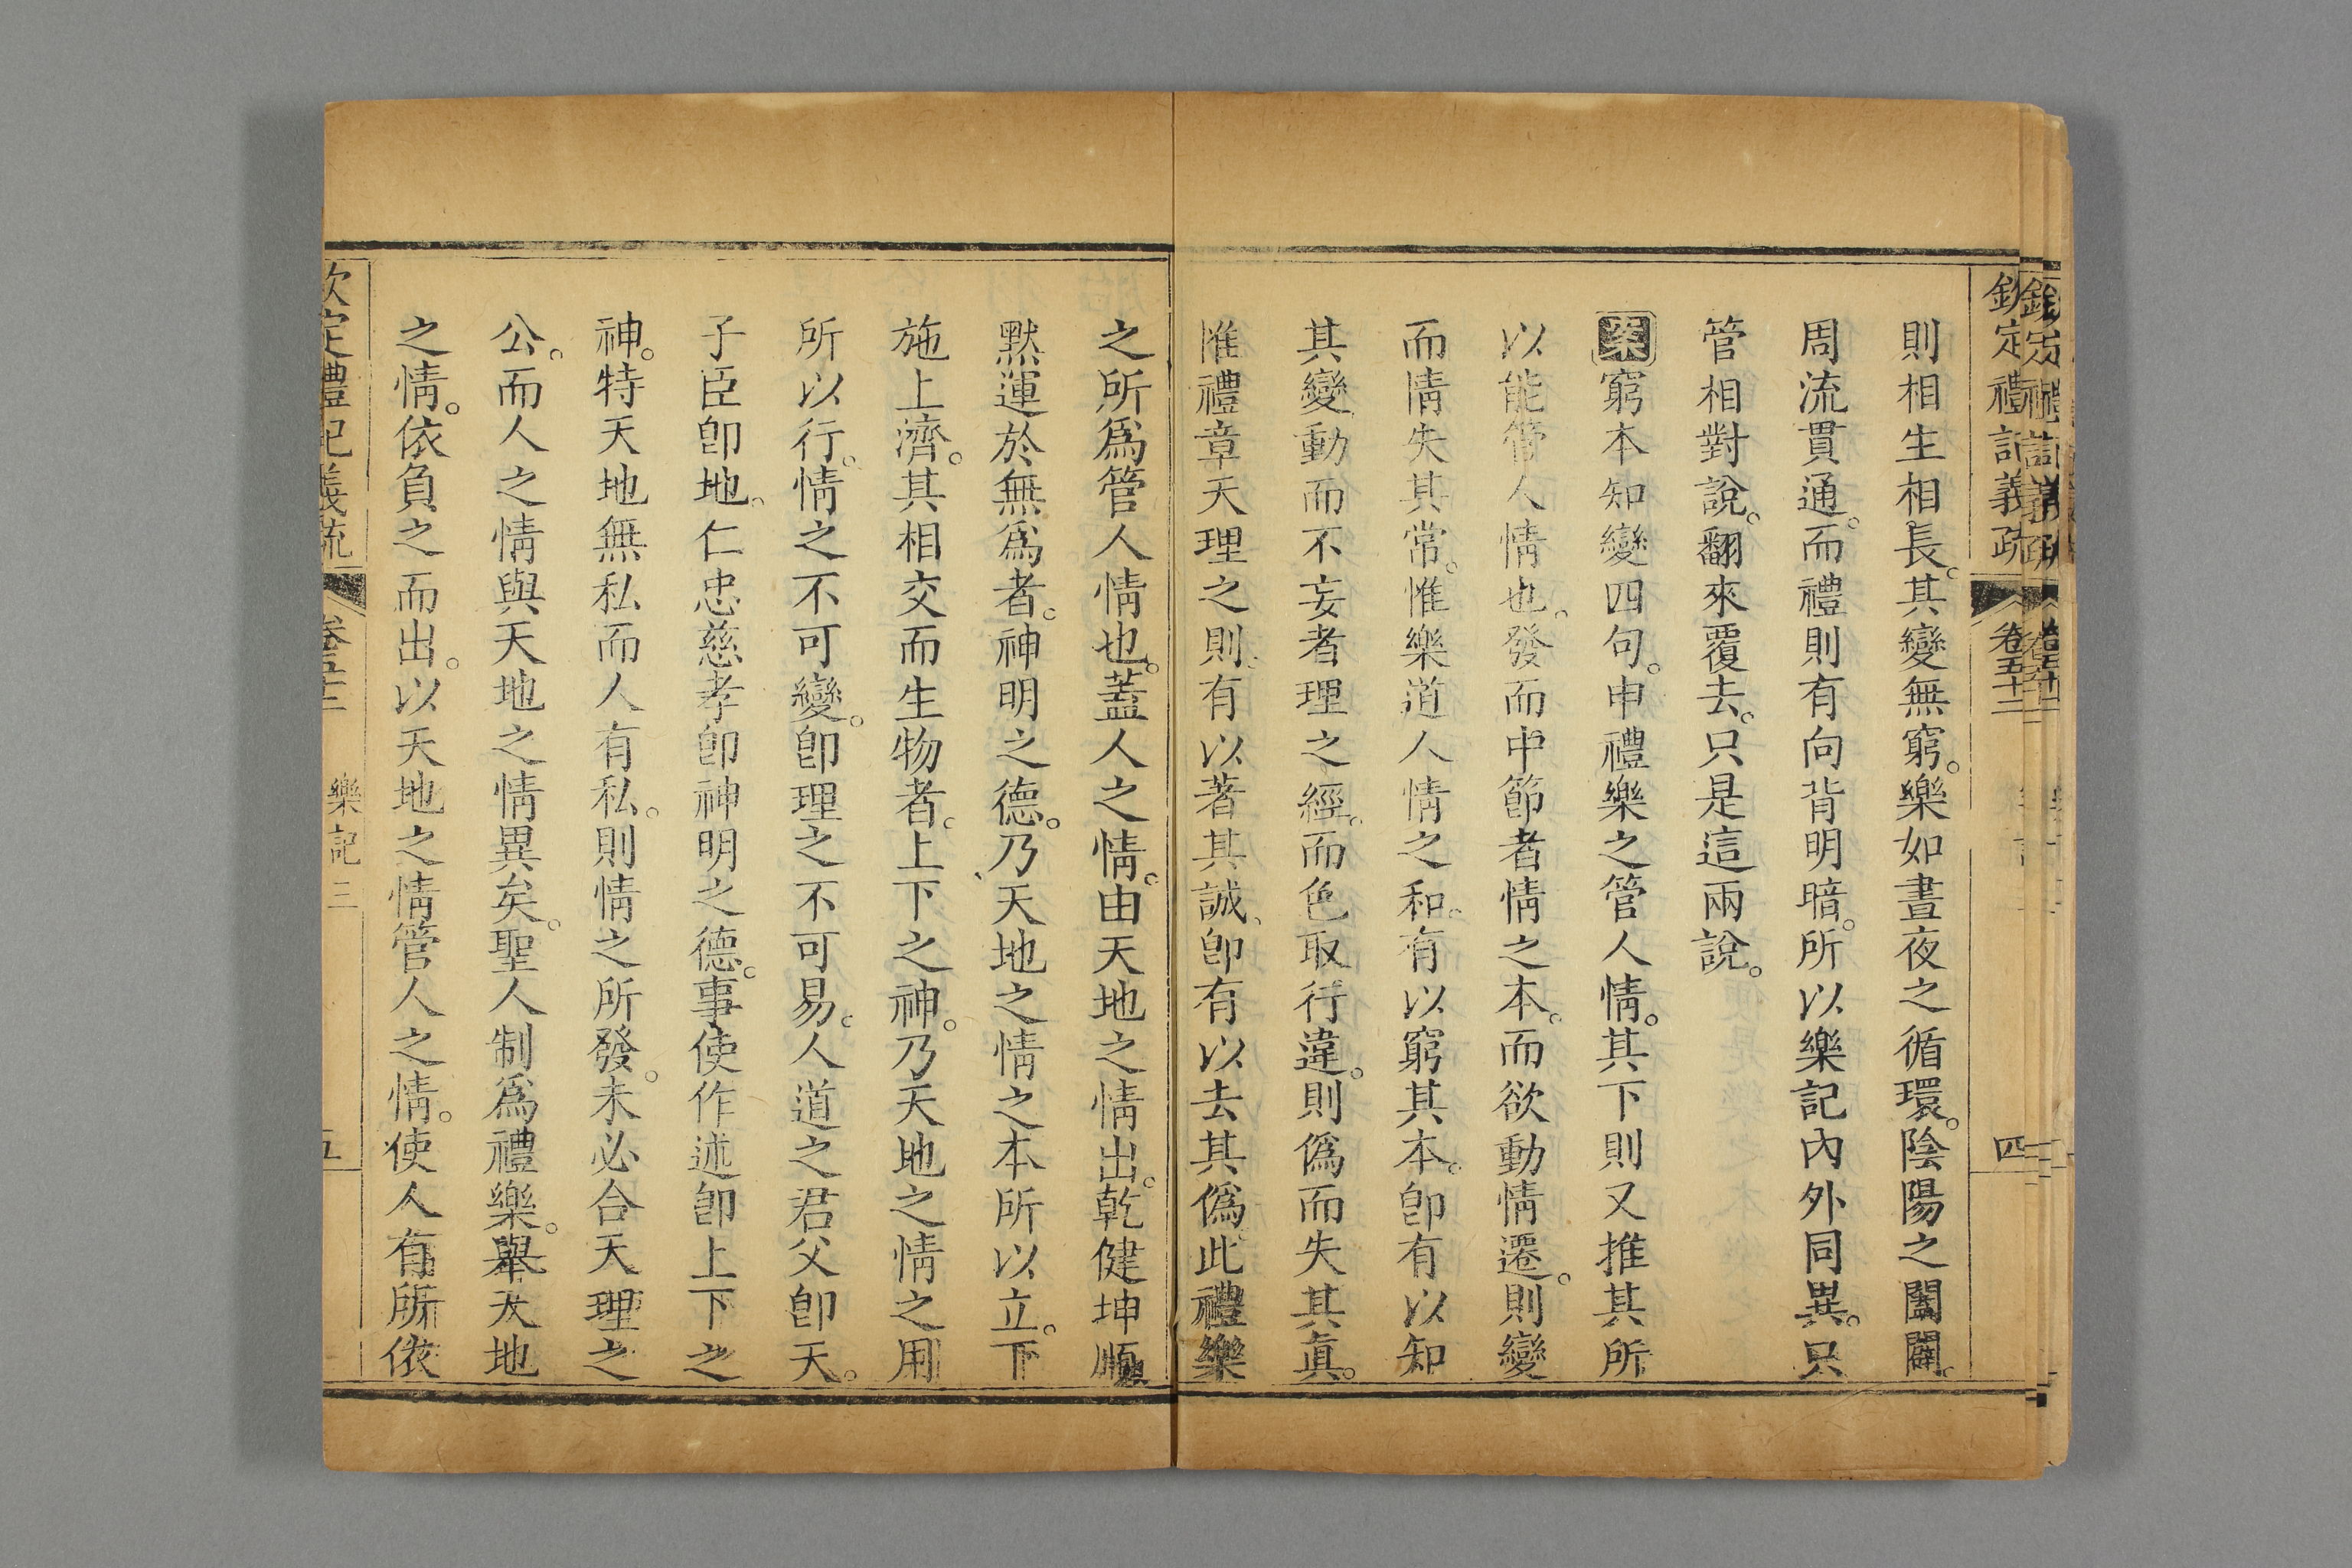 欽定禮記義疏 卷五十二 四
則相生相長。其變無窮。樂如晝夜之循環。陰陽之闔闢。
周流貫通。而禮則有向背明暗。所以樂記內外同異。只
管相對說。翻來覆去。只是這兩說。
案窮本知變四句。申禮樂之管人情。其下則又推其所
以能管人情也。發而中節者情之本。而欲動情遷。則變
而情失其常。惟樂道人情之和。有以窮其本。卽有以知
其變動而不妄者理之經。而色取行違。則僞而失其眞。
惟禮章天理之則。有以著其誠。卽有以去其僞。此禮樂
之所爲管人情也。蓋人之情。由天地之情出。乾健坤順
默運於無爲者。神明之德。乃天地之情之本所以立。下
施上濟。其相交而生物者。上下之神。乃天地之情之用
所以行。情之不可變。卽理之不可易。人道之君父卽天。
子臣卽地。仁忠慈孝卽神明之德。事使作述卽上下之
神。特天地無私而人有私。則情之所發。未必合天理之
公。而人之情與天地之情異矣。聖人制爲禮樂。舉天地
之情。依負之而出。以天地之情管人之情。使人有所依
欽定禮記義疏 卷五十二 樂記三 五